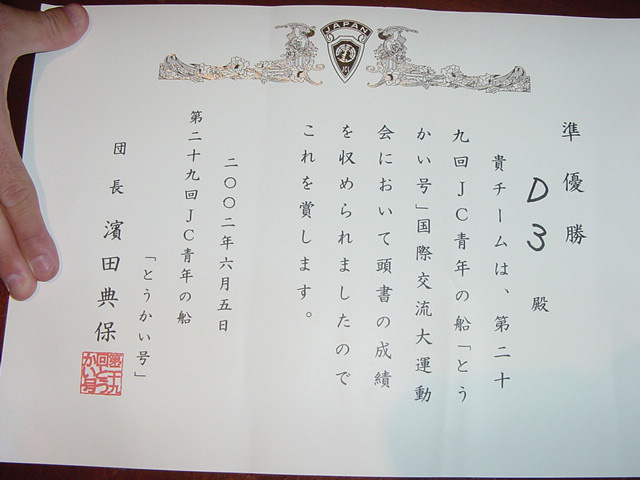 JAPAN
JCI
準優勝
D3 殿
貴チームは、第二十
九回JC青年の船「とう
かい号」国際交流大運動
会において頭書の成績
を収められましたので
これを賞します。
二〇〇二年六月五日
第二十九回JC青年の船
「とうかい号」
団長 濱田典保
第二十九
回とう
かい号